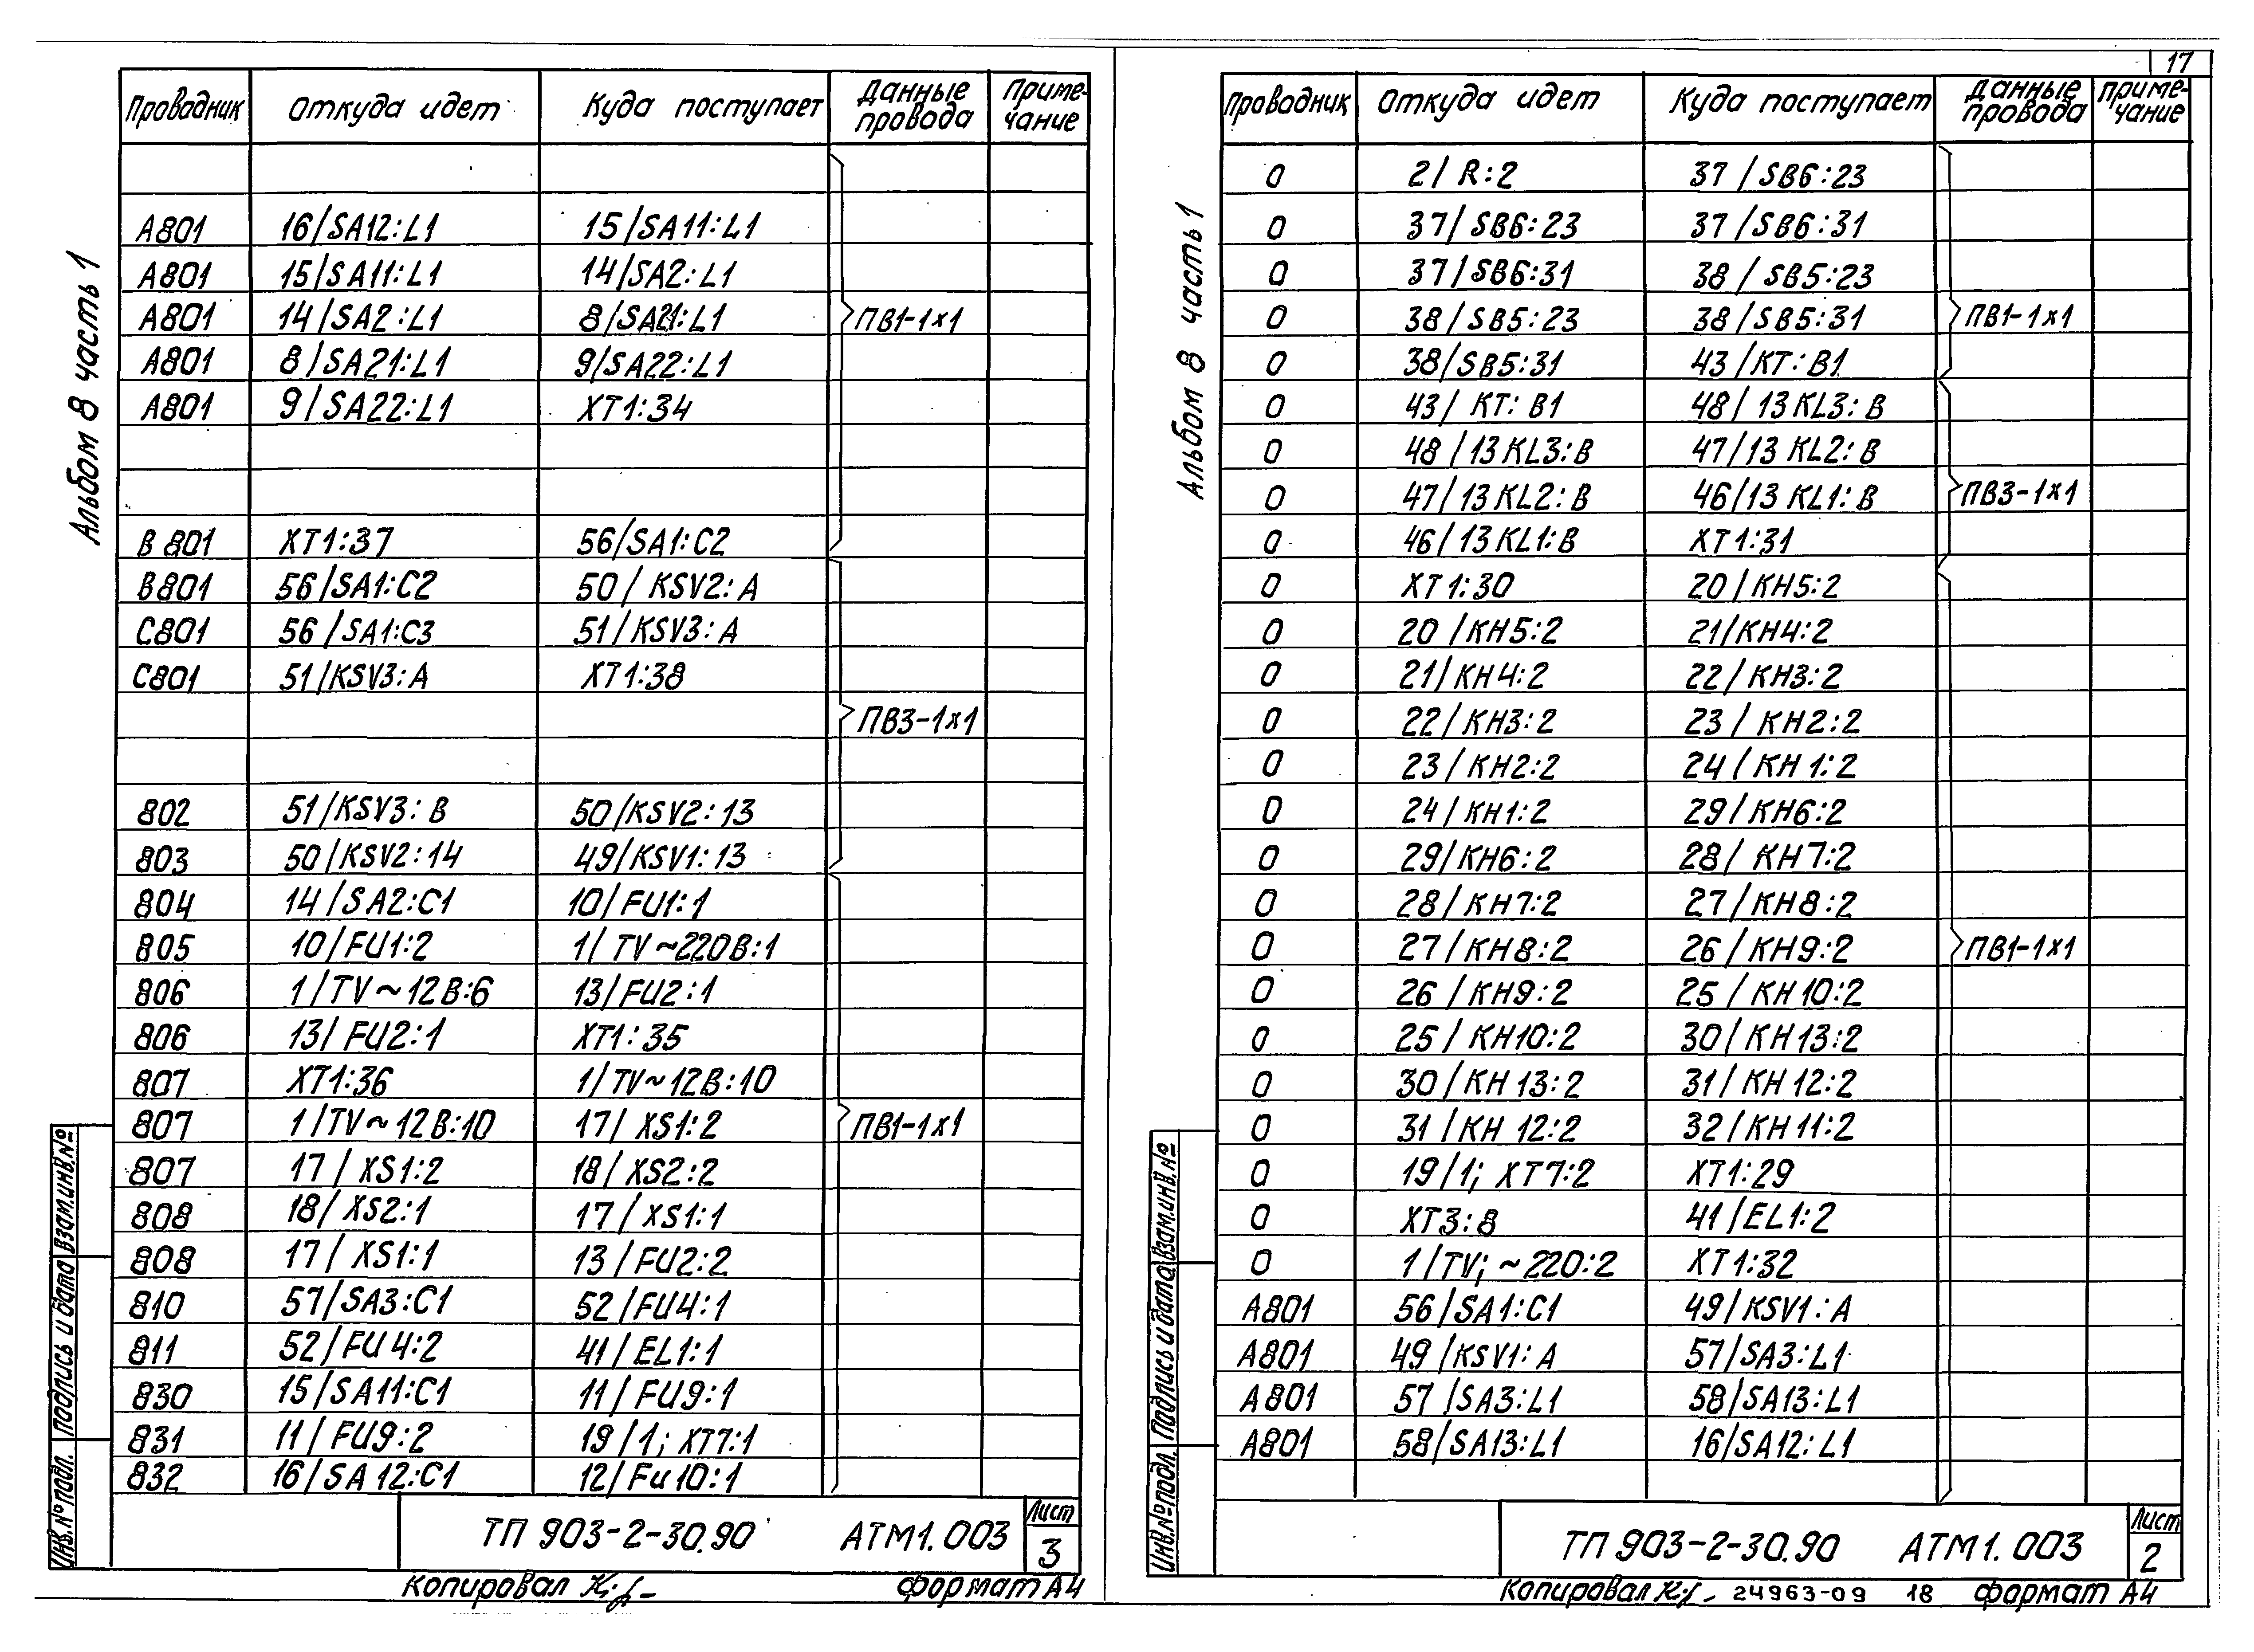 17
Альбом 8 часть 1
Проводник Откуда идет Куда поступает Данные провода Приме-чание
А801 16/SA12:L1 15/SA11:L1
А801 15/SA11:L1 14/SA2:L1
А801 14/SA2:L1 8/SA21:L1 ПВ1-1х1
А801 8/SA21:L1 9/SA22:L1
А801 9/SA22:L1 XT1:34
В801 XT1:37 56/SA1:C2
В801 56/SA1:C2 50/KSV2:A
С801 56/SA1:C3 51/KSV3:A
С801 51/KSV3:A XT1:38
ПВ3-1х1
802 51/KSV3:B 50/KSV2:13
803 50/KSV2:14 49/KSV1:13
804 14/SA2:C1 10/FU1:1
805 10/FU1:2 1/TV~220В:1
806 1/TV~12В:6 13/FU2:1
806 13/FU2:1 XT1:35
807 XT1:36 1/TV~12В:10
807 1/TV~12В:10 17/XS1:2 ПВ1-1х1
807 17/XS1:2 18/XS2:2
808 18/XS2:1 17/XS1:1
808 17/XS1:1 13/FU2:2
810 57/SA3:C1 52/FU4:1
811 52/FU4:2 41/EL1:1
830 15/SA11:C1 11/FU9:1
831 11/FU9:2 19/1; XT7:1
832 16/SA12:C1 12/Fu10:1
Инв.№ подл. Подпись и дата Взам.инв.№
ТП 903-2-30.90 АТМ1.003 Лист 3
Копировал формат А4
Альбом 8 часть 1
Проводник Откуда идет Куда поступает Данные провода Приме-чание
0 2/R:2 37/SB6:23
0 37/SB6:23 37/SB6:31
0 37/SB6:31 38/SB5:23
0 38/SB5:23 38/SB5:31 ПВ1-1х1
0 38/SB5:31 43/KT:B1
0 43/KT:B1 48/13KL3:B
0 48/13KL3:B 47/13KL2:B
0 47/13KL2:B 46/13KL1:B ПВ3-1х1
0 46/13KL1:B XT1:31
0 XT1:30 20/KH5:2
0 20/KH5:2 21/KH4:2
0 21/KH4:2 22/KH3:2
0 22/KH3:2 23/KH2:2
0 23/KH2:2 24/KH1:2
0 24/KH1:2 29/KH6:2
0 29/KH6:2 28/KH7:2
0 28/KH7:2 27/KH8:2
0 27/KH8:2 26/KH9:2 ПВ1-1х1
0 26/KH9:2 25/KH10:2
0 25/KH10:2 30/KH13:2
0 30/KH13:2 31/KH12:2
0 31/KH12:2 32/KH11:2
0 19/1; XT7:2 XT1:29
0 XT3:8 41/EL1:2
0 1/TV; ~220:2 XT1:32
А801 56/SA1:C1 49/KSV1:A
А801 49/KSV1:A 57/SA3:L1
А801 57/SA3:L1 58/SA13:L1
А801 58/SA13:L1 16/SA12:L1
Инв.№ подл. Подпись и дата Взам.инв.№
ТП 903-2-30.90 АТМ1.003 Лист 2
Копировал 24963-09 18 формат А4